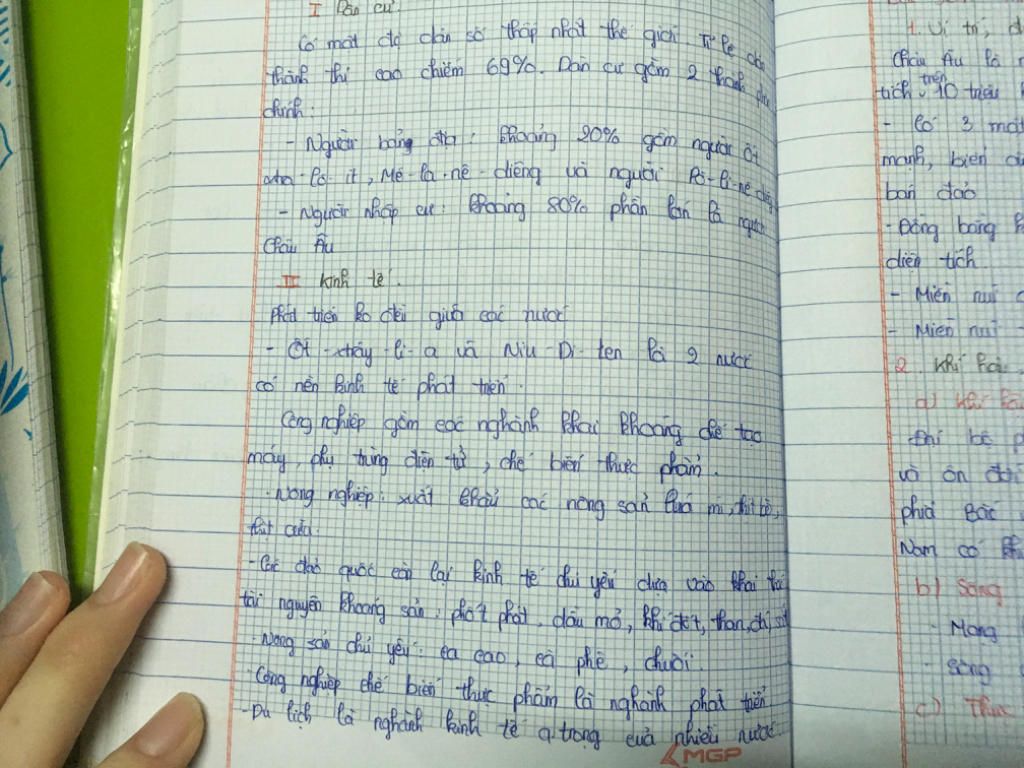 I Dân cư.
Có mật độ dân số thấp nhất thế giới. Tỉ lệ dân
thành thị cao chiếm 69%. Dân cư gồm 2 thành phần
chính:
- Người bản địa: khoảng 20% gồm người Ôt
xtra-lô-it, Mê-la-nê-diêng và người Pô-li-nê-diêng
- Người nhập cư: khoảng 80% phần lớn là người
Châu Âu
II Kinh tế.
Phát triển ko đều giữa các nước
- Ôt-xtrây-li-a và Niu-Di-len là 2 nước
có nền kinh tế phát triển.
Công nghiệp gồm các nghành khai khoáng chế tạo
máy, phụ tùng điện tử, chế biến thực phẩm.
. Nông nghiệp: xuất khẩu các nông sản lúa mì, thịt bò,
thịt cừu.
- Các đảo quốc còn lại kinh tế chủ yếu dựa vào khai thác
tài nguyên khoáng sản: phốt phát, dầu mỏ, khí đốt, than,
- Nông sản chủ yếu: ca cao, cà phê, chuối.
- Công nghiệp chế biến thực phẩm là nghành phát triển
- Du lịch là nghành kinh tế q trọng của nhiều nước.
MGP
1. Vị trí,
Châu Âu là
tích trên 10 triệu
- Có 3 mặt
mạnh, biển
bán đảo
- Đồng bằng
diện tích.
- Miền núi
- Miền núi
2. Khí hậu,
a) Khí hậu
Đại bộ
và ôn đới
phía Bắc
Nam có
b) Sông
- Mạng
- Sông
c) Thực